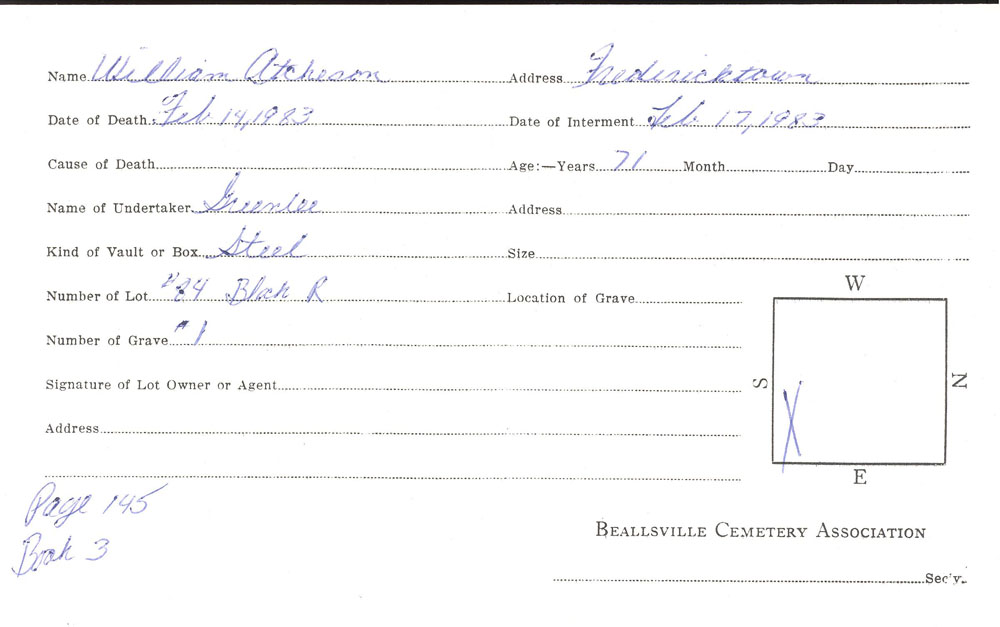 Name William Atcheson Address Fredericktown
Date of Death Feb 14, 1983 Date of Interment Feb 17, 1983
Cause of Death Age:—Years 71 Month Day
Name of Undertaker Greenlee Address
Kind of Vault or Box Steel Size
Number of Lot "84 Block R Location of Grave
W
Number of Grave "1
Signature of Lot Owner or Agent
S N
Address
E
Page 145
Book 3
BEALLSVILLE CEMETERY ASSOCIATION
Sec'y.